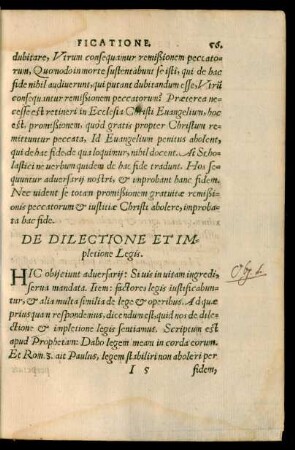 FICATIONE. 56.
dubitare, Vtrum consequamur remißionem peccato-
rum, Quomodo in morte sustentabunt se isti, qui de hac
fide nihil audiuerunt, qui putant dubitandum esse, Vtrũ
consequantur remißionem peccatorum? Præterea ne-
cesse est retineri in Ecclesia Christi Euangelium, hoc
est, promißionem, quòd gratis propter Christum re-
mittuntur peccata, Id Euangelium penitus abolent,
qui de hac fide, de qua loquimur, nihil docent. At Scho-
lastici ne uerbum quidem de hac fide tradunt. Hos se-
quuntur aduersarij nostri, & improbant hanc fidem.
Nec uident se totam promißionem gratuitæ remißi-
onis peccatorum & iustitiæ Christi abolere, improba-
ta hac fide.
DE DILECTIONE ET IM-
pletione Legis.
HIC obijciunt aduersarij: Si uis in uitam ingredi,
serua mandata. Item: factores legis iustificabun-
tur, & alia multa similia de lege & operibus. Ad quæ
priusquam respondemus, dicendum est, quid nos de dile-
ctione & impletione legis sentiamus. Scriptum est
apud Prophetam: Dabo legem meam in corda eorum.
Et Rom. 3. ait Paulus, legem stabiliri non aboleri per
I 5 fidem,